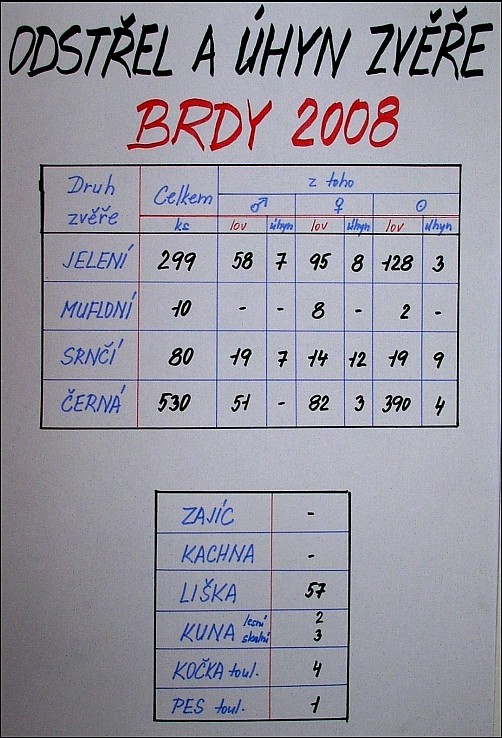 ODSTŘEL A ÚHYN ZVĚŘE
BRDY 2008
Druh zvěře Celkem z toho
♂ ♀ ⊙
ks lov úhyn lov úhyn lov úhyn
JELENÍ 299 58 7 95 8 128 3
MUFLONÍ 10 - - 8 - 2 -
SRNČÍ 80 19 7 14 12 19 9
ČERNÁ 530 51 - 82 3 390 4
ZAJÍC -
KACHNA -
LIŠKA 57
KUNA lesní 2
skalní 3
KOČKA toul. 4
PES toul. 1